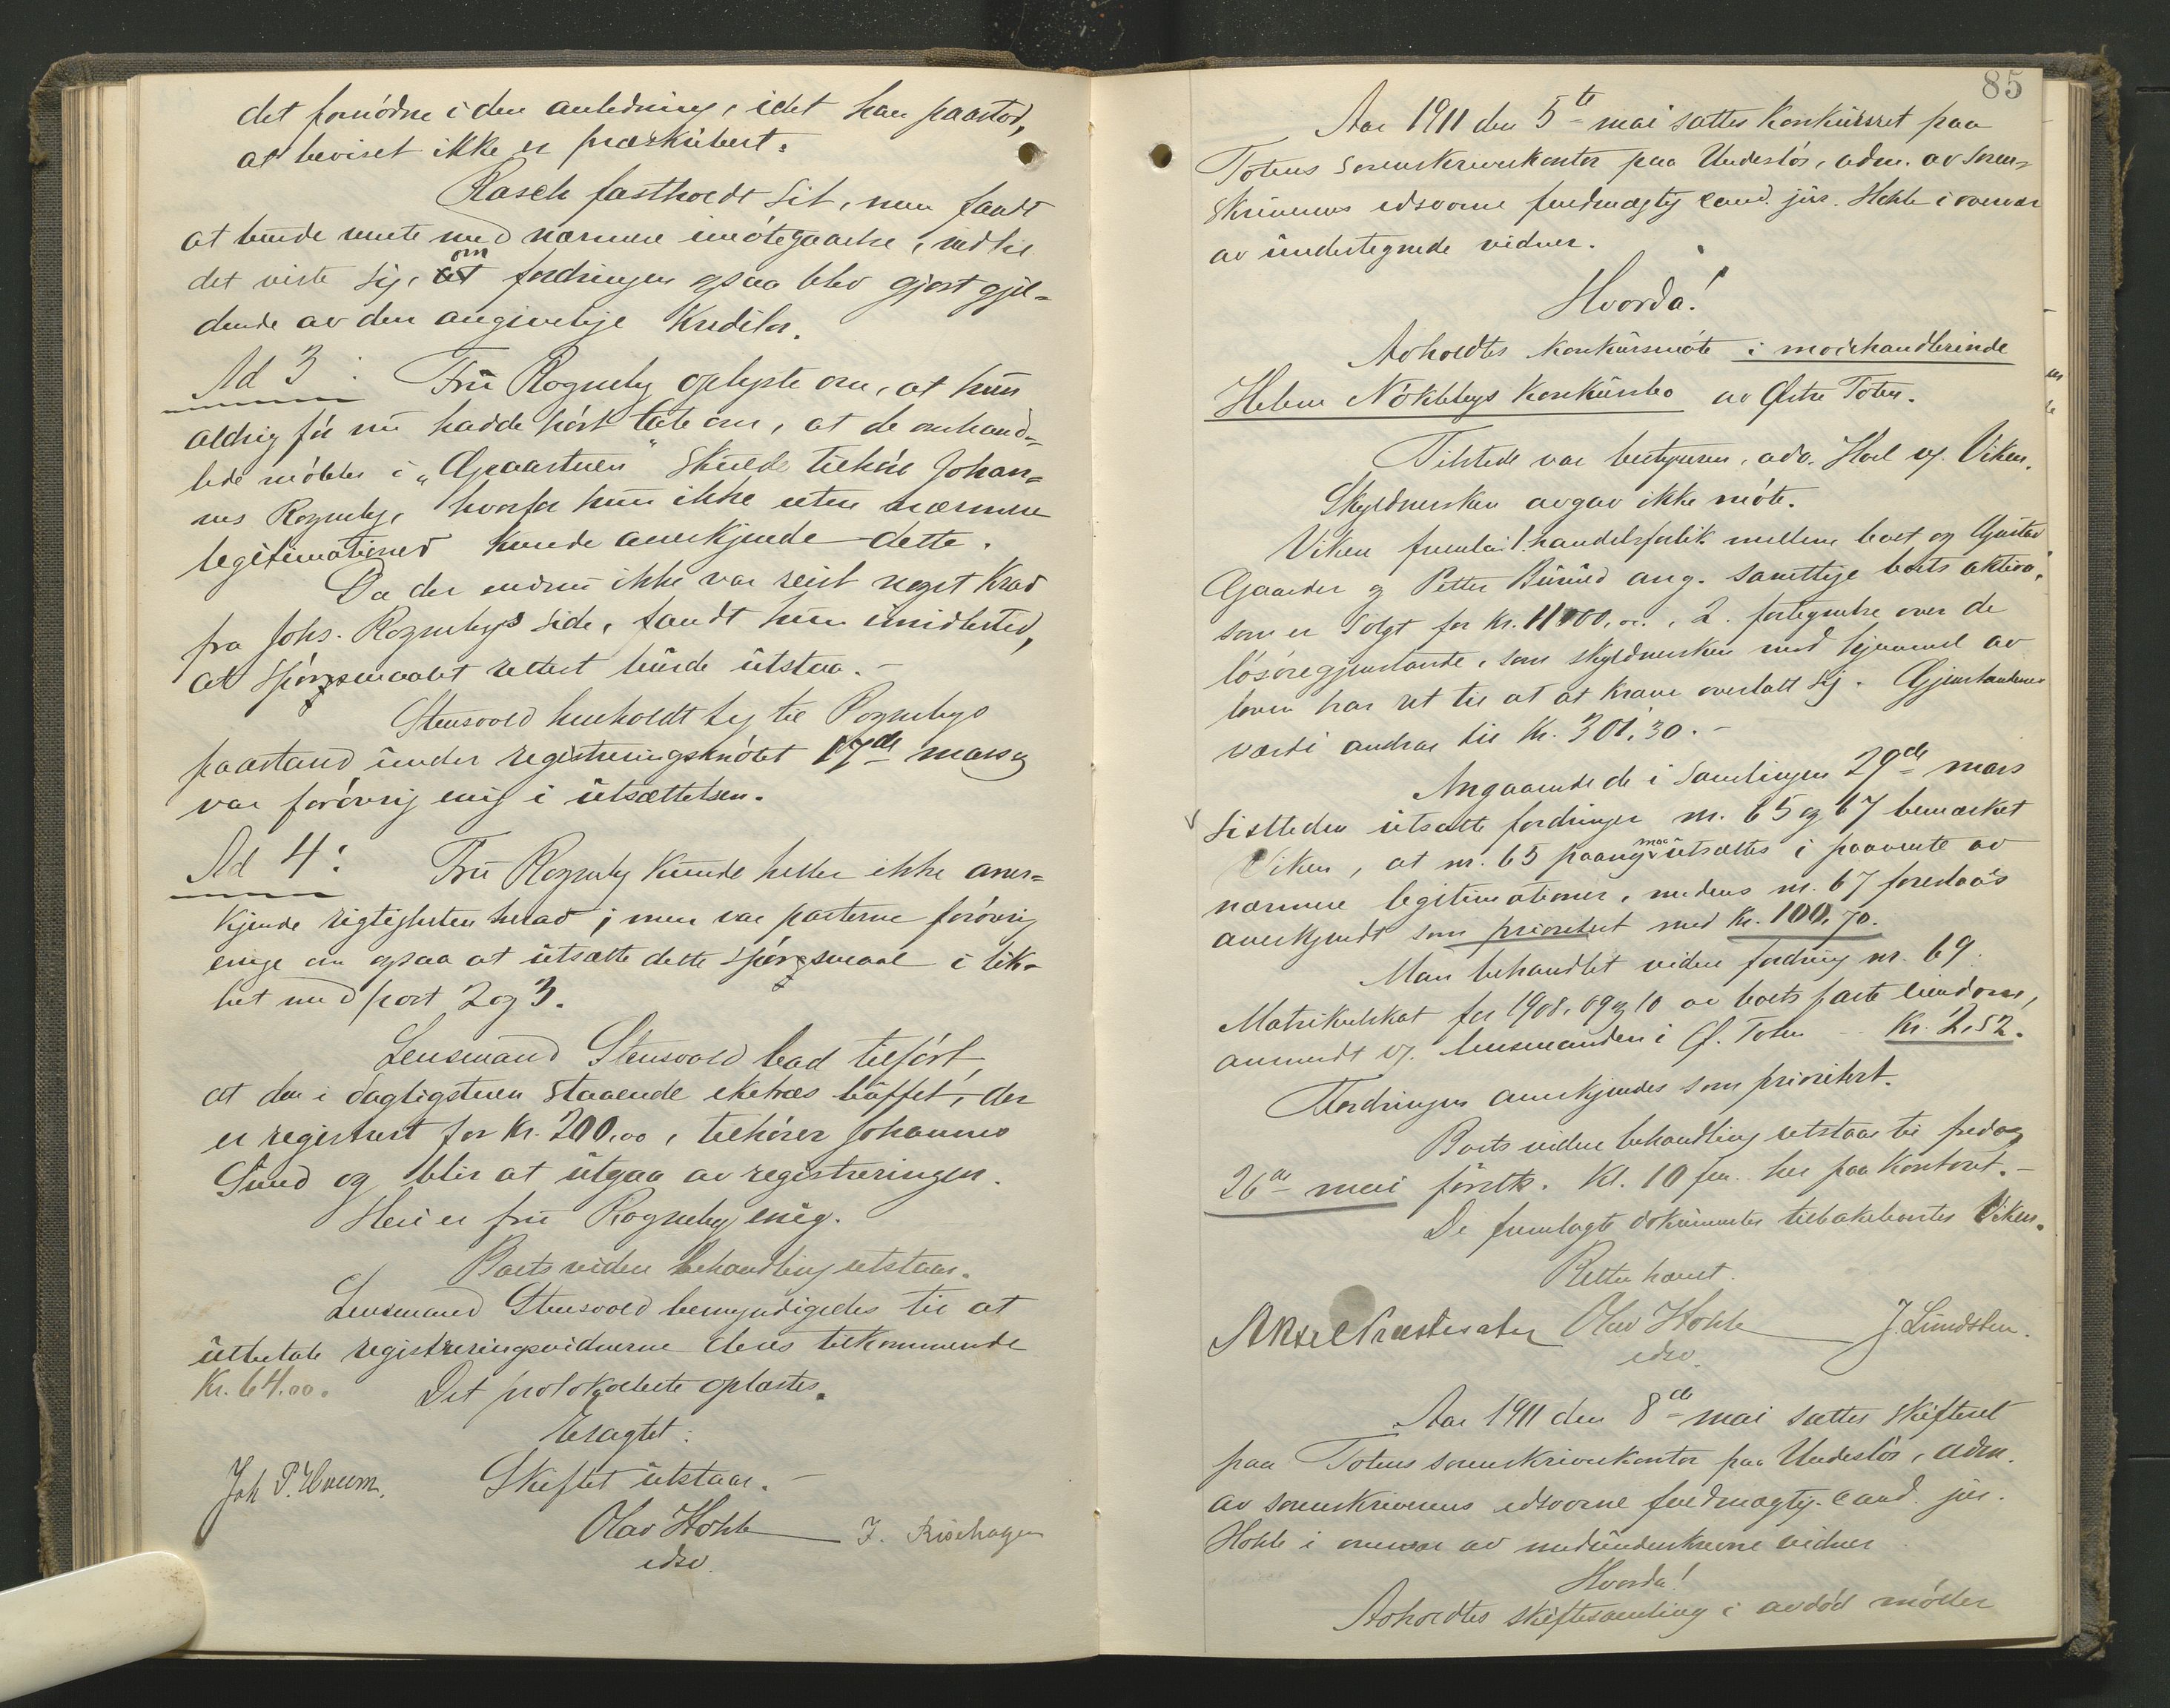 det fornødne i den anledning, idet han paastod,
at beviset ikke er prækludert.
Rasch fastholdt sit, men fandt
at burde vente med nærmere imøtegaaelse, indtil
det viste sig, om fordringen ogsaa blev gjort gjæl-
dende av den angivelige kreditor.
Ad 3: Fru Rogneby oplyste om, at hun
aldrig før nu hadde hørt tale om, at de omhand-
lede møbler i "Graastuen" skulde tilhøre Johan-
nes Rogneby, hvorfor hun ikke uten nærmere
legitimationer kunde anerkjende dette.
Da der endnu ikke var reist noget krav
fra Johs. Rognebys side, fandt hun imidlertid,
at spørgsmaalet rettest burde utstaa.-
Stensvold henholdt sig til Rognebys
paastand under registreringsmøtet 17de mars og
var forøvrig enig i utsættelsen.
Ad 4: Fru Rogneby kunde heller ikke aner-
kjende rigtigheten herav; men var parterne forøvrig
enige om ogsaa at utsætte dette spørgsmaal i lik-
het med post 2 og 3.
Lensmand Stensvold bad tilført,
at den i dagligstuen staaende eketræs buffet, der
er registrert for kr. 200,00, tilhører Johannes
Sund og blir at utgaa av registreringen.
Heri er fru Rogneby enig.
Boets videre behandling utstaar.
Lensmand Stensvold bemyndigedes til at
utbetale registreringsvidnerne deres tilkommende
kr. 64.00. Det protokollerte oplæstes.
Eragtet:
Skiftet utstaar.-
Joh P. Hveem.
Olav Hohle J. Risehagen
edsv.
85
Aar 1911 den 5te mai sattes konkursret paa
Totens sorenskriverkontor paa Underlös, adm. av soren-
skriverens edsvorne fuldmægtig cand. jur. Hohle i overvær
av undertegnede vidner.
Hvorda!
Avholdtes konkursmøte i motehandlerinde
Helene Nøklebys konkursbo av Østre Toten.
Tilstede var bestyreren, adv. Hoel v. Viken.
Skyldnersken avgav ikke møte.
Viken fremla 1. handelsforlik mellem boet og Gustav
Gaarder og Petter Bürud ang. samtlige boets aktiva,
som er solgt for kr. 11000,00., 2. fortegnelse over de
løsøregjenstande, som skyldnersken med hjemmel av
loven har ret til at at kræve overlatt sig. Gjenstandenes
værdi andrar til kr. 301,30.-
Angaaende de i samlingen 29de mars
sistleden utsatte fordringer nr. 65 og 67 bemærket
Viken, at nr. 65 paany maa utsættes i paavente av
nærmere legitimationer, medens nr. 67 foreslaas
anerkjendt som prioritert med kr. 100,70.
Man behandlet videre fordring nr. 69.
Matrikulskat for 1908, 09 og 10 av boets faste eiendom,
anmeldt v. lensmanden i Ø. Toten - kr. 2,52.
Fordringen anerkjendes som prioritert.
Boets videre behandling utstaar til fredag
26de mai førstk. kl. 10 fm. her paa kontoret.-
De fremlagte dokumenter tilbakelevertes Viken.
Retten hævet.
Aksel Præstesæter Olav Hohle J. Lundsten.
edsv.
Aar 1911 den 8de mai sattes skifteret
paa Totens sorenskriverkontor paa Underlös, adm.
av sorenskriverens edsvorne fuldmægtig cand. jur.
Hohle i overvær av medunderskrevne vidner
Hvorda!
Avholdtes skiftesamling i avdød møller